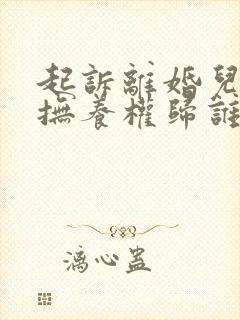 起訴離婚兒
撫養權歸誰
漓心蛊